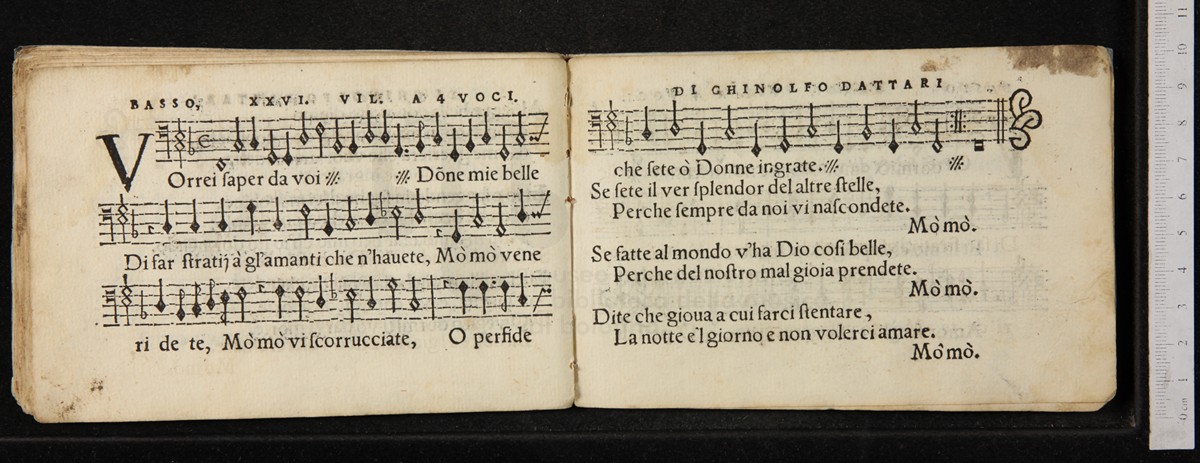 BASSO, XXVI. VIL. A 4 VOCI.
VOrrei ſaper da voi :||: :||: Dõne mie belle
Di far ſtratij à gl'amanti che n'hauete, Mò mò vene
ri de te, Mò mò vi ſcorrucciate, O perfide
DI GHINOLFO DATTARI
che ſete ò Donne ingrate. :||: :||:
Se ſete il ver ſplendor del altre ſtelle,
Perche ſempre da noi vi naſcondete.
Mò mò.
Se fatte al mondo v'ha Dio coſi belle,
Perche del noſtro mal gioia prendete.
Mò mò.
Dite che gioua a cui farci ſtentare,
La notte e'l giorno e non volerci amare.
Mò mò.
0 cm 1 2 3 4 5 6 7 8 9 10 11